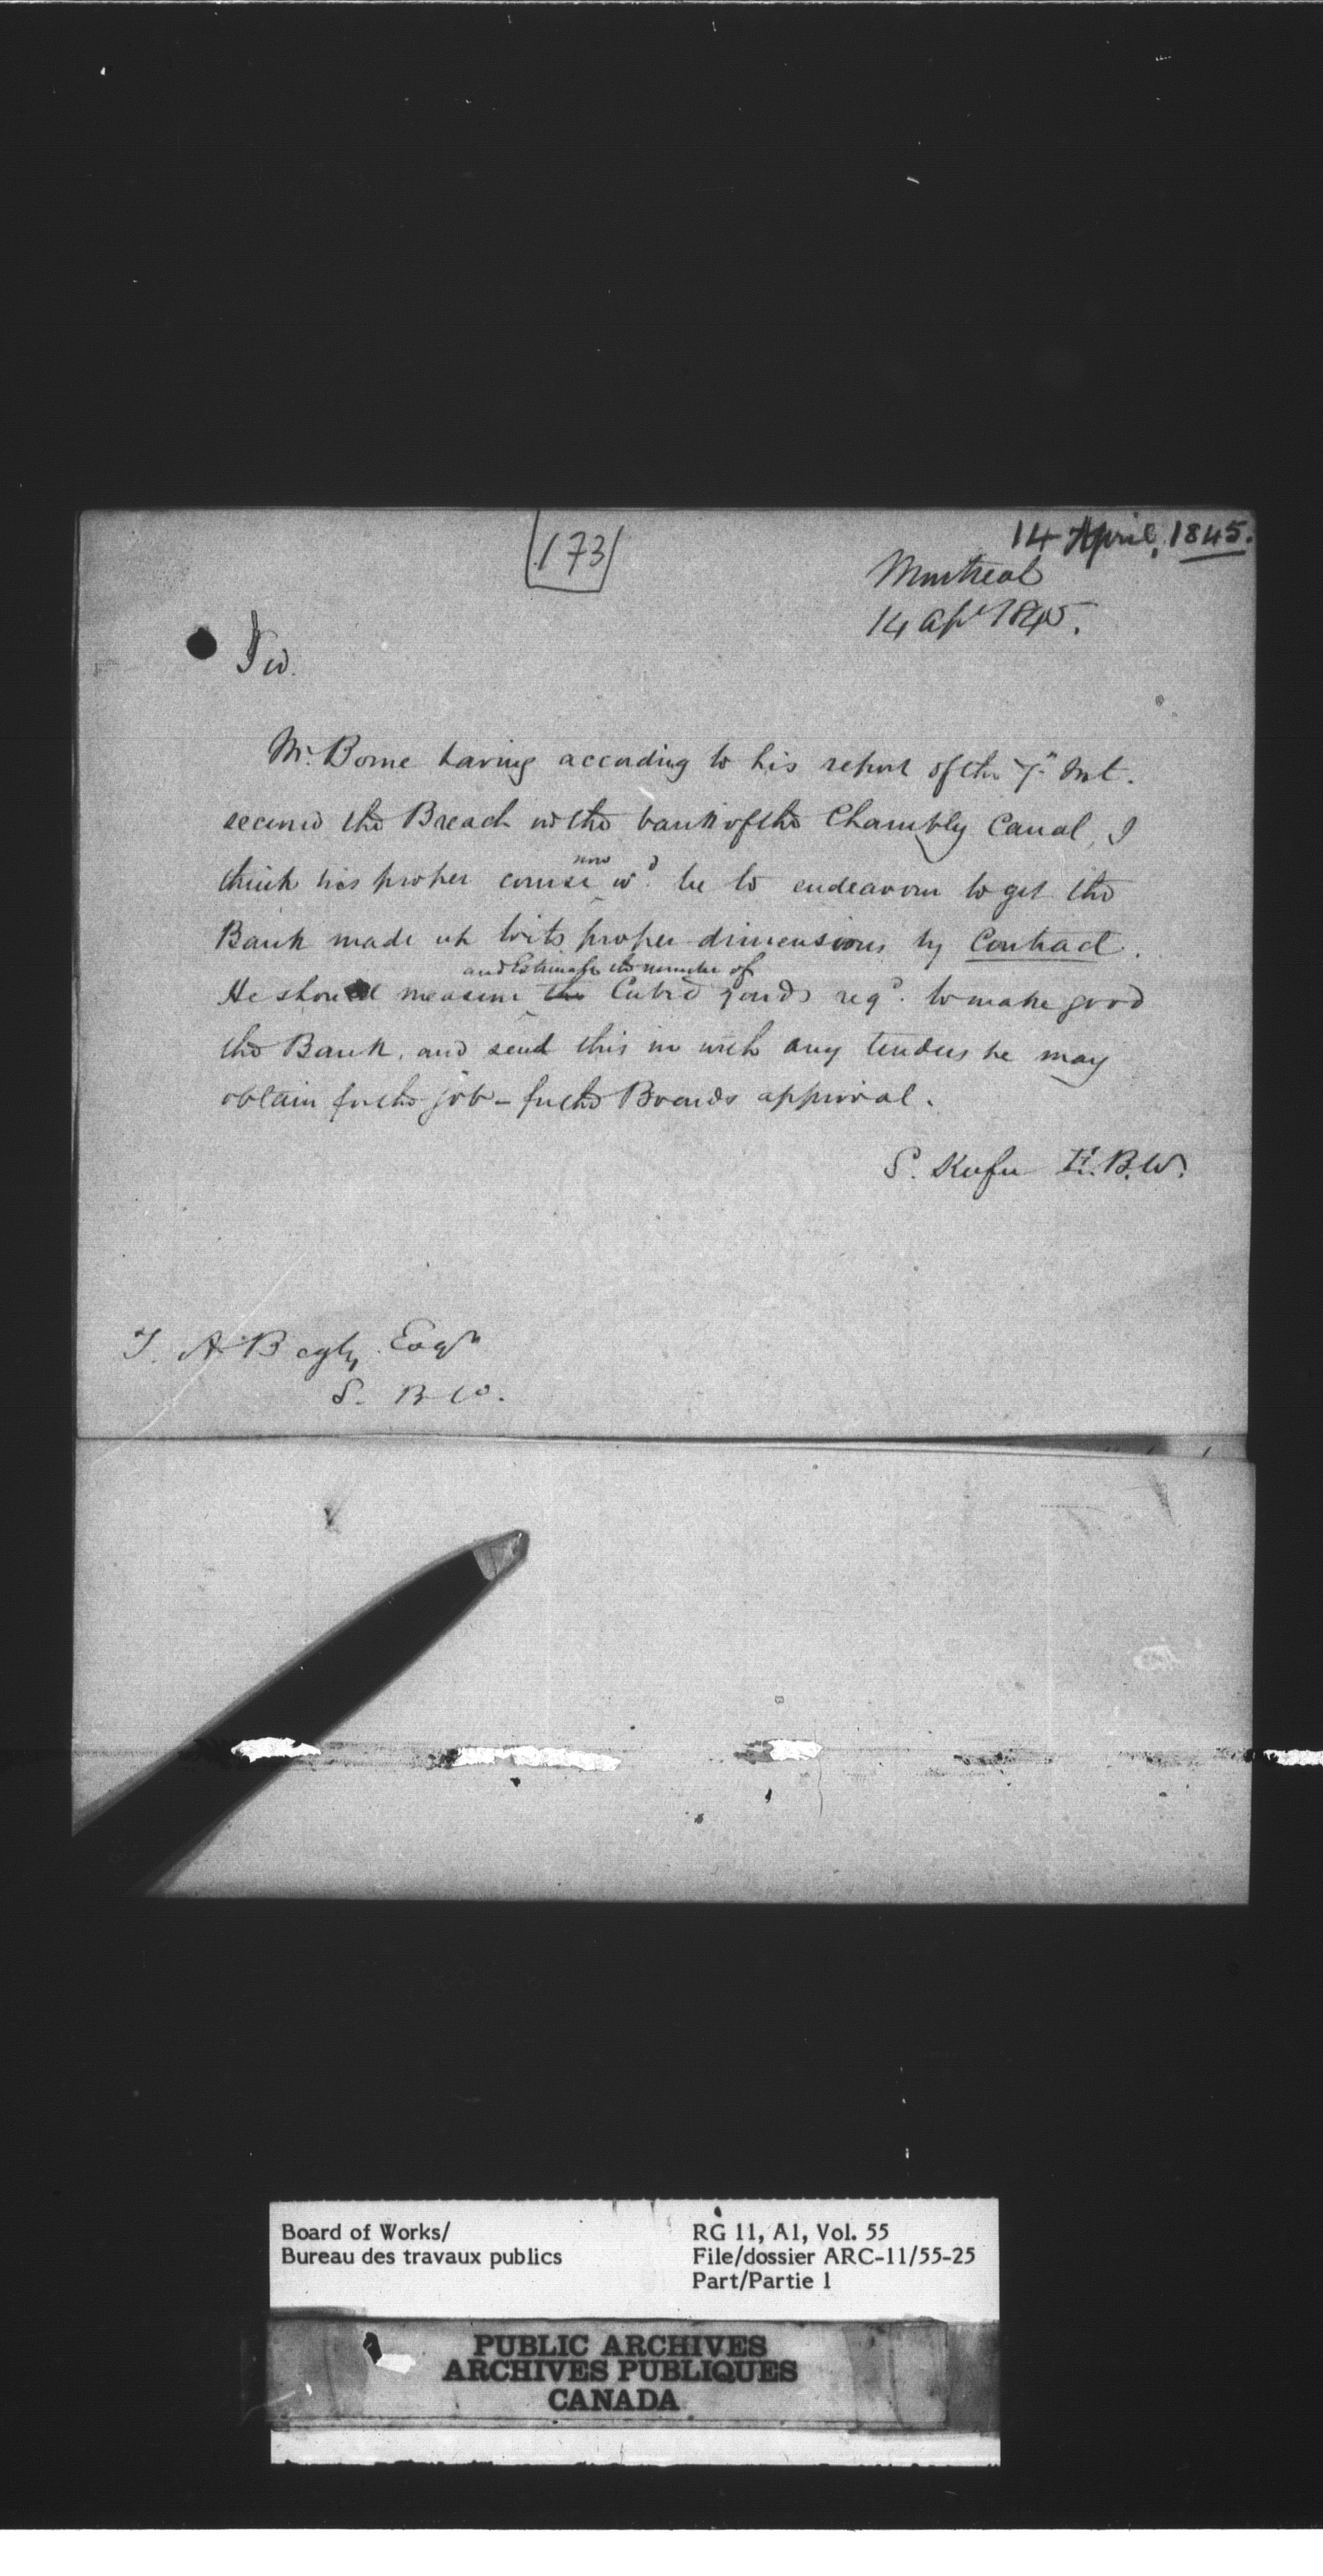 173
14 April, 1845.
Montreal
14 Apl 1845.
Sir.
Mr. Borne having according to his report of the 7th Inst.
secured the Breach in the bank of the Chambly Canal, I
think his proper course now wd. be to endeavour to get the
Bank made up to its proper dimensions by Contract.
He should measure and Estimate the number of Cubic yards reqd. to make good
the Bank, and send this in with any tenders he may
obtain for the job - for the Boards approval.
S. Keefer E. B. W.
T. A. Begly Esqr
S. B W.
Board of Works/
Bureau des travaux publics
RG 11, A1, Vol. 55
File/dossier ARC-11/55-25
Part/Partie 1
PUBLIC ARCHIVES
ARCHIVES PUBLIQUES
CANADA